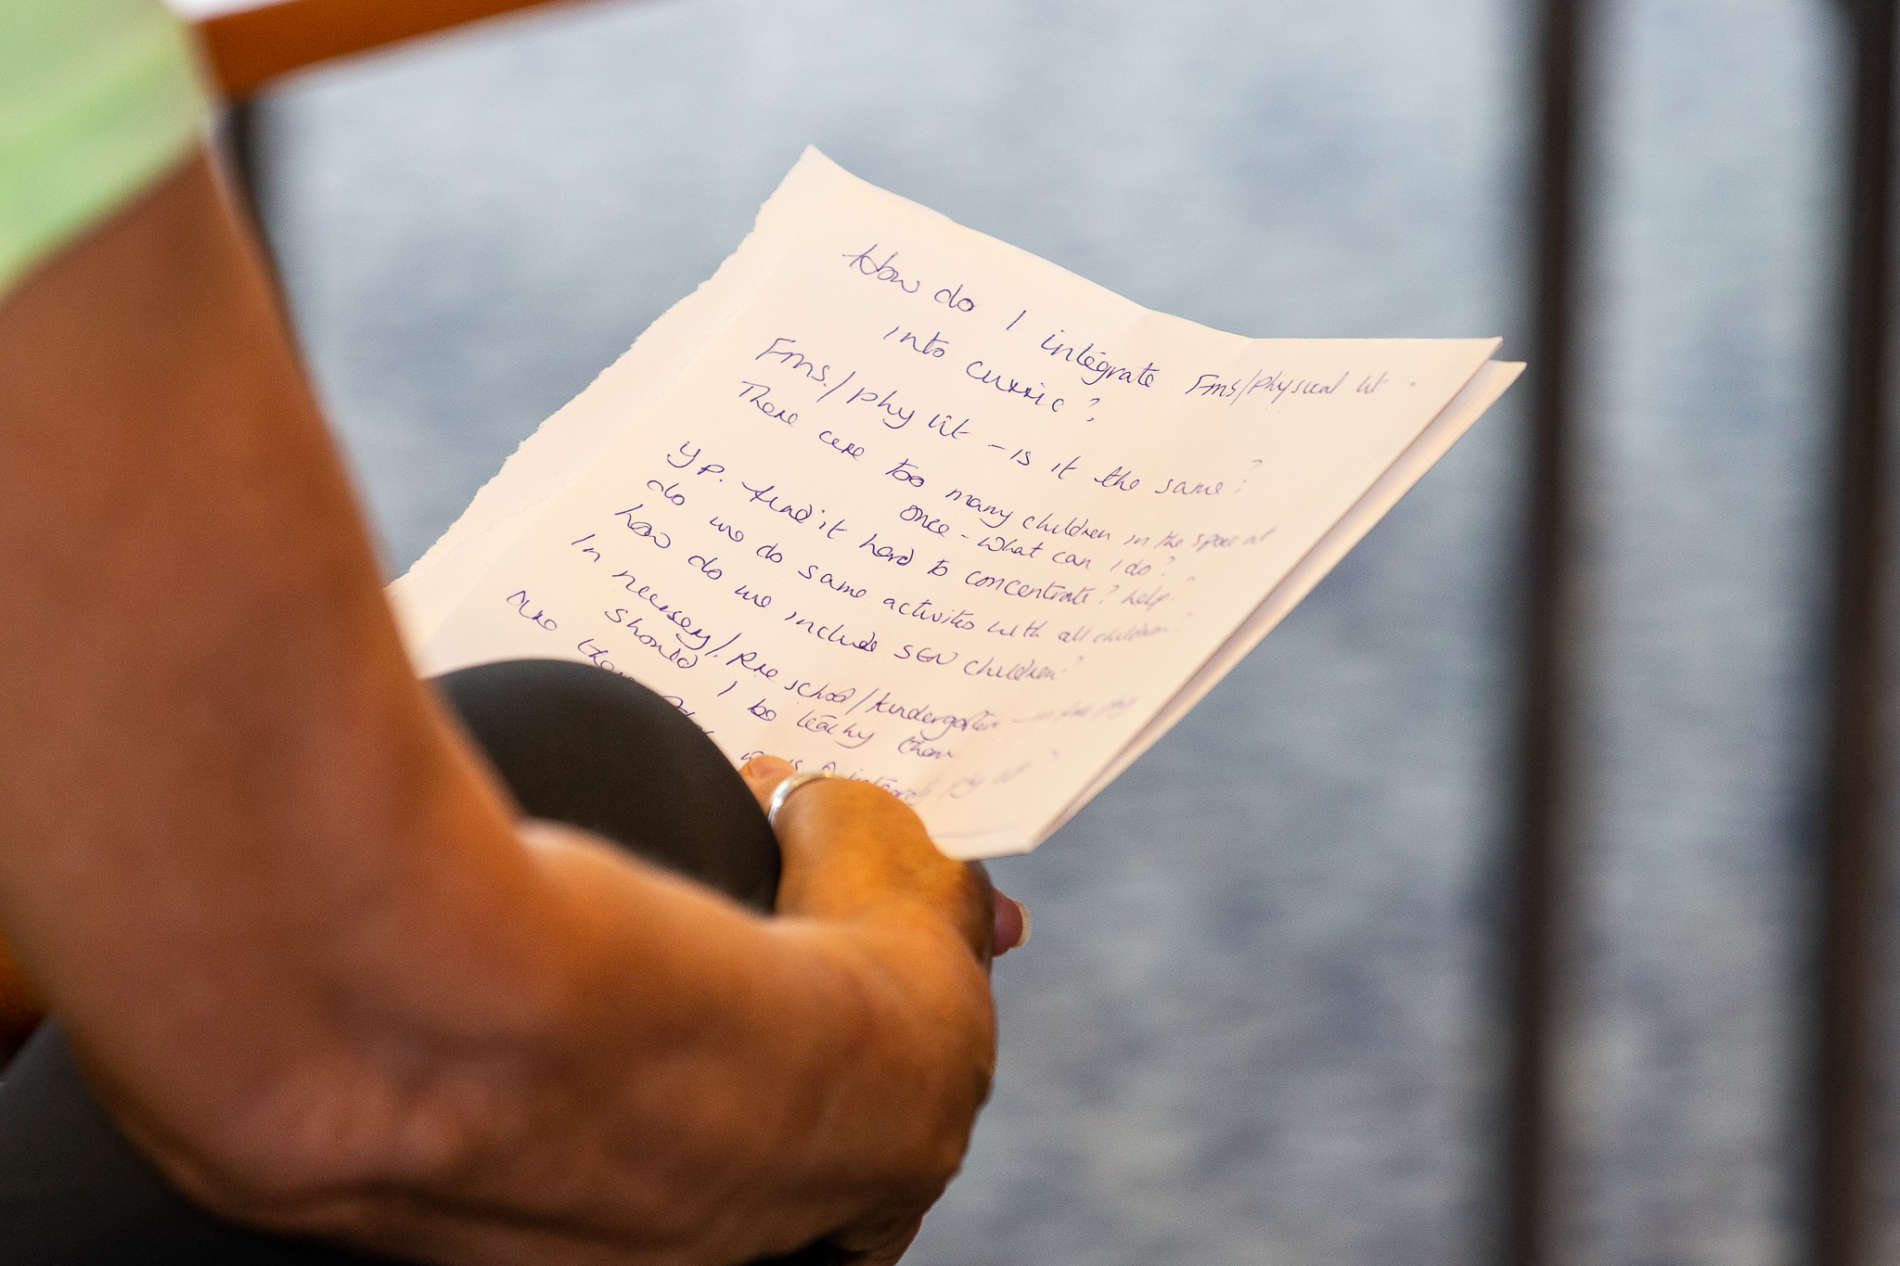 How do I integrate Fms/Physical lit
into curric?
Fms./Phy lit - is it the same?
There are too many children in the space at
once - What can I do?
YP. find it hard to concentrate? help.
do we do same activities with all children?
how do we include SEN children?
In nursery/Pre school/kindergarten
should I be teachy them
are